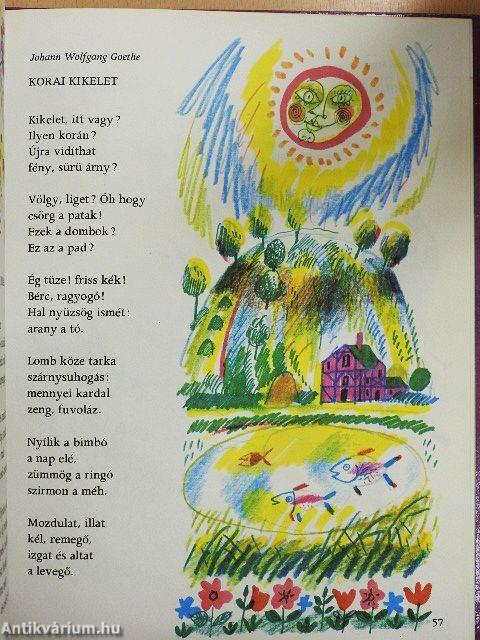 Johann Wolfgang Goethe
KORAI KIKELET
Kikelet, itt vagy?
Ilyen korán?
Újra vidíthat
fény, sürü árny?
Völgy, liget? Óh hogy
csörg a patak!
Ezek a dombok?
Ez az a pad?
Ég tüze! friss kék!
Bérc, ragyogó!
Hal nyüzsög ismét:
arany a tó.
Lomb köze tarka
szárnysuhogás:
mennyei kardal
zeng, fuvoláz.
Nyílik a bimbó
a nap elé,
zümmög a ringó
szirmon a méh.
Mozdulat, illat
kél, remegő,
izgat és altat
a levegő.
57
Antikvárium.hu